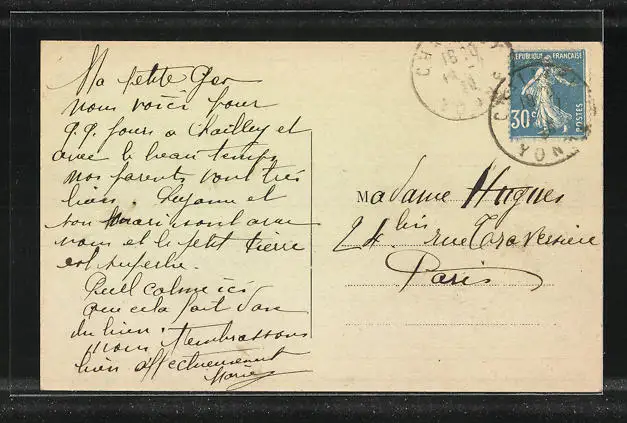 Ma petite Geo
nous voici pour
q.q. jours a Chailley et
avec le beau temps
nos parents vont très
bien. Suzanne et
son mari sont avec
nous et le petit Pierre
est superbe.
Quel calme ici
que cela fait donc
du bien.
nous t'embrassons
bien affectueusement
Marie
REPUBLIQUE FRANÇAISE
30c
POSTES
YONNE
Madame Hugues
24 bis rue Traversière
Paris